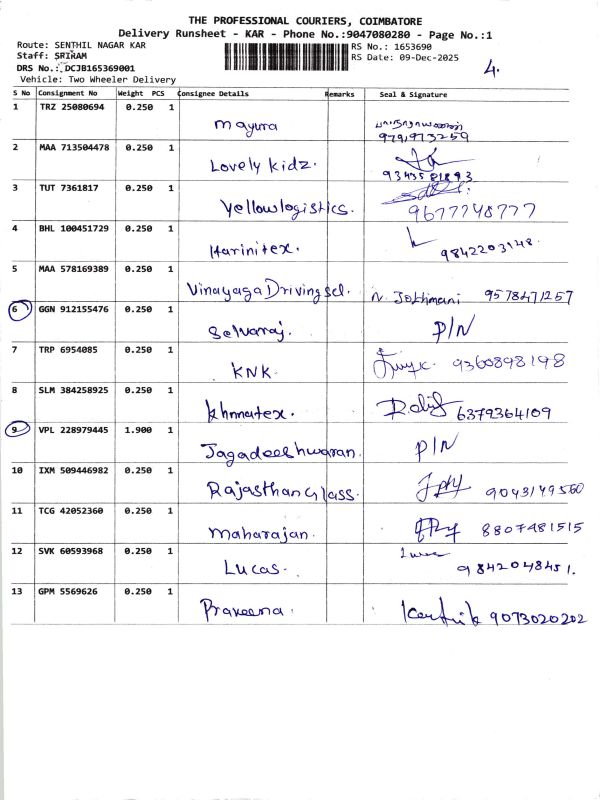 THE PROFESSIONAL COURIERS, COIMBATORE
Delivery Runsheet - KAR - Phone No.:9047080280 - Page No.:1
Route: SENTHIL NAGAR KAR RS No.: 1653690
Staff: SRIRAM RS Date: 09-Dec-2025
DRS No.: DCJB165369001 4.
Vehicle: Two Wheeler Delivery
S No Consignment No Weight PCS Consignee Details Remarks Seal & Signature
1 TRZ 25080694 0.250 1 Mayura 9791973259
2 MAA 713504478 0.250 1 Lovely kidz. 9343581893
3 TUT 7361817 0.250 1 Yellowlogistics. 9677748777
4 BHL 100451729 0.250 1 Harinitex. 9842203148.
5 MAA 578169389 0.250 1 Vinayaga Driving scl. N. Jothimani 9578471257
6 GGN 912155476 0.250 1 Selvaraj. P/N
7 TRP 6954085 0.250 1 KNK. 9360898198
8 SLM 384258925 0.250 1 khnnatex. 6379364109
9 VPL 228979445 1.900 1 Jagadeeshwaran. P/N
10 IXM 509446982 0.250 1 Rajasthan Glass. 9043149560
11 TCG 42052360 0.250 1 Maharajan. 8807481515
12 SVK 60593968 0.250 1 Lucas. 9842048451.
13 GPM 5569626 0.250 1 Praveena. Karthik 9073020202